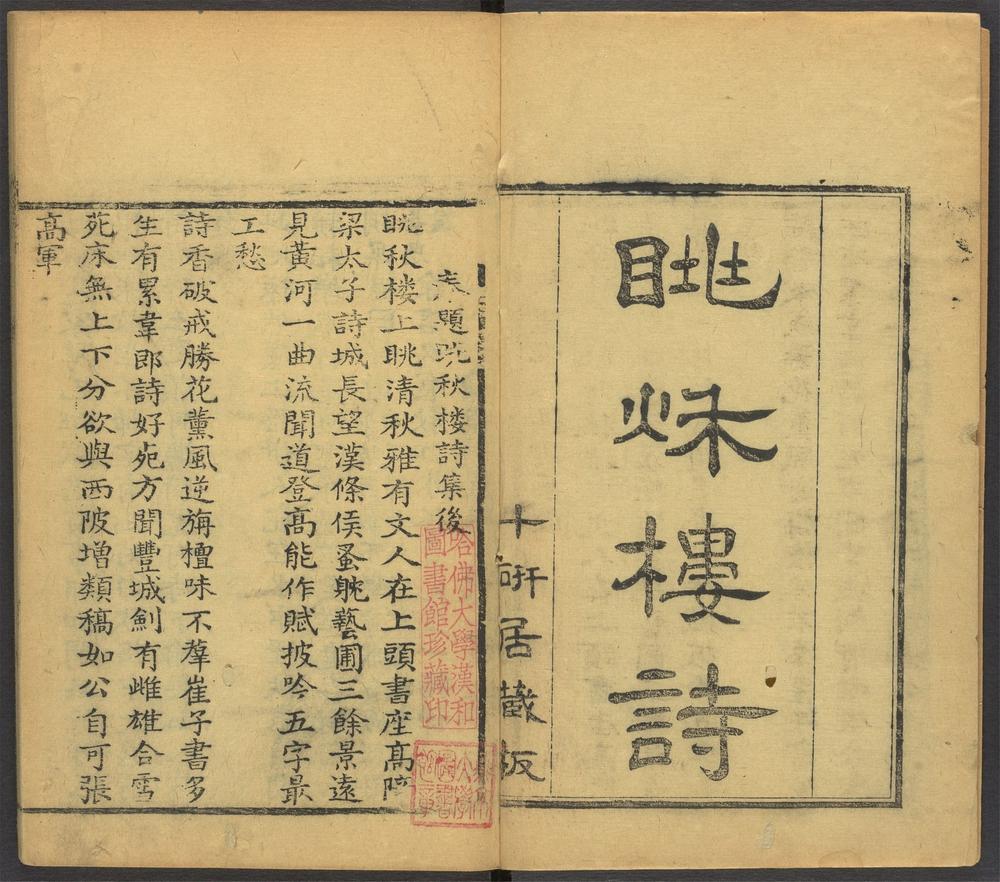 眺秌樓詩
十硏居藏板
題眺秋楼詩集後
眺秋楼上眺清秋雅有文人在上頭書座髙隣
梁太子詩城長望漢條侯蚤躭藝圃三餘景遠
見黃河一曲流聞道登髙能作賦披吟五字最
工愁
詩香破戒勝花薰風逆旃檀味不羣崔子書多
生有累韋郎詩好死方聞豐城劍有雌雄合雪
苑床無上下分欲與西陂增類稿如公自可張
髙軍
哈佛大學漢和
圖書館珍藏印